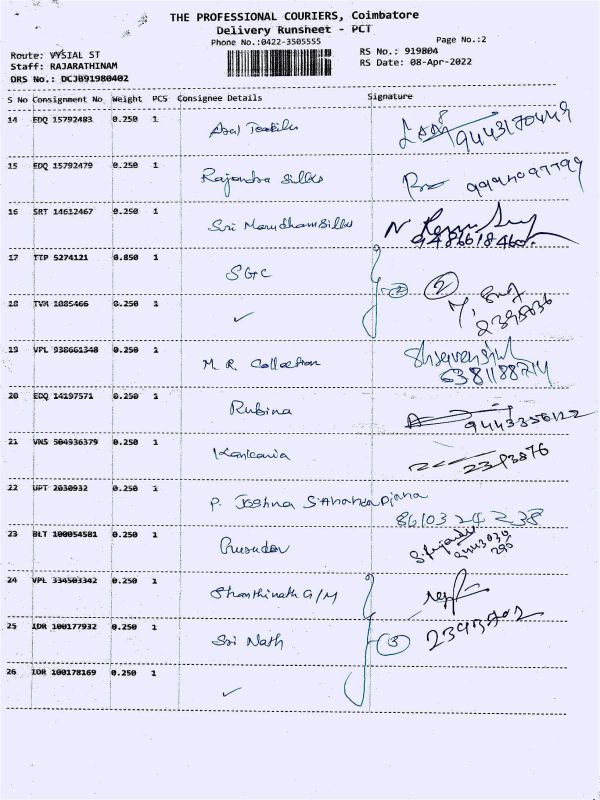 THE PROFESSIONAL COURIERS, Coimbatore
Delivery Runsheet - PCT
Phone No.:0422-3505555
Page No.:2
Route: VYSIAL ST
RS No.: 919804
Staff: RAJARATHINAM
RS Date: 08-Apr-2022
DRS No.: DCJB91980402
S No Consignment No Weight PCS Consignee Details Signature
14 EDQ 15792483 0.250 1
9443170449
15 EDQ 15792479 0.250 1 Rajendra Silks
16 SRT 14612467 0.250 1 Sri Marudham Silks
9486618460
17 TTP 5274121 0.850 1 SGC
2
2
18 TVM 1085466 0.250 1 ✓
2395036
19 VPL 938661348 0.250 1 M. R. Collection
6381188714
20 EDQ 14197571 0.250 1 Rubina
21 VNS 504936379 0.250 1
2393876
22 UPT 2630932 0.250 1 P. Joshna
8610324238
23 BLT 100054581 0.250 1
24 VPL 334503342 0.250 1 Shanthinath G/M
25 IDR 100177932 0.250 1 Sri Nath
3
26 IDR 100178169 0.250 1 ✓